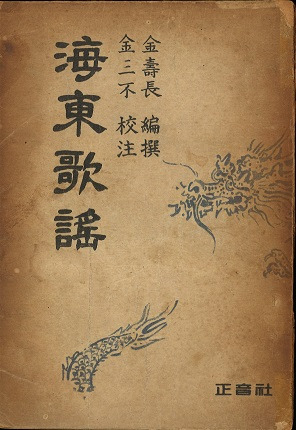 海東歌謠
金壽長 編撰
金三不 校注
正音社